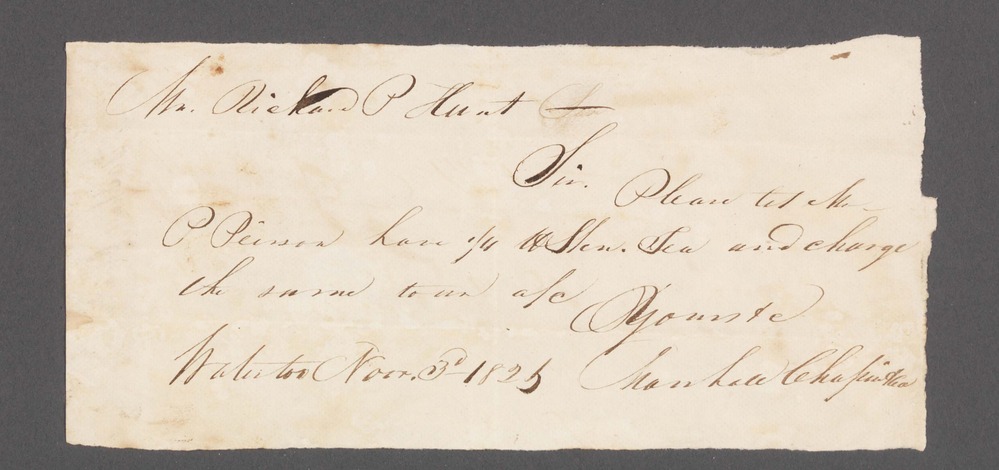 Mr. Richard P Hunt
Sir. Please let Mr
P Peirson have 1/4 lb Skn. Tea and charge
the same to our a/c
Yours &c
Waterloo Novr. 3d 1825 Marshall Chapin &Co